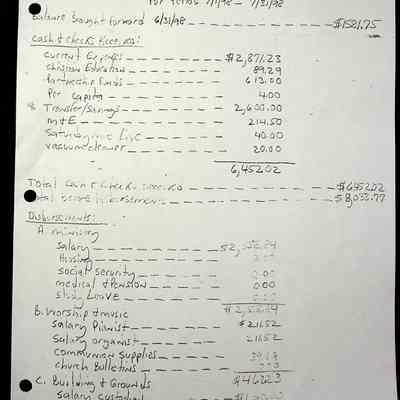 For Period 7/1/98 - 7/31/98
Balance Brought Forward 6/31/98 - - - - - - - - - - $1581.75
Cash & Checks Received:
Current Expenses - - - - - - $2,871.23
Christian Education - - - - - 89.29
Partnership Funds - - - - - 613.00
Per Capita - - - - - 4.00
& Transfer/Savings - - - - - 2,600.00
M&E - - - - - 214.50
Saturday Live - - - - - 40.00
Vacuum cleaner - - - - - 20.00
6,452.02
Total Cash & Checks received - - - - - - $6452.02
Total before Disbursements - - - - - - $8,033.77
Disbursements:
A. Ministry
Salary - - - - -
Housing - - - - -
Social Security - - - - - 0.00
medical & Pension - - - - - 0.00
Study Leave - - - - -
B. Worship & Music
Salary Pianist - - - - - $216.52
Salary organist - - - - - 216.52
Communion Supplies - - - - -
Church Bulletins - - - - -
C. Building & Grounds
Salary custodial